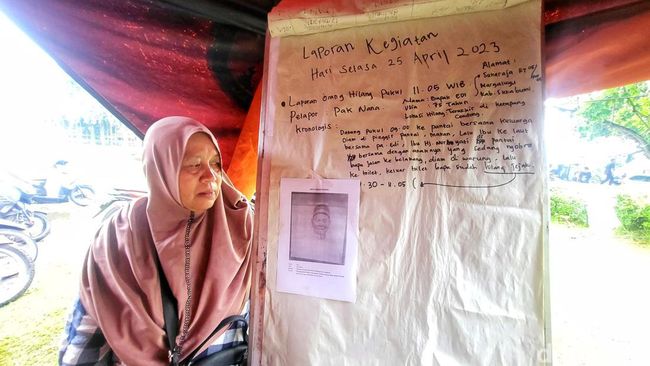 Laporan Kegiatan
Hari Selasa 25 April 2023
Laporan orang Hilang Pukul 11.05 WIB
Pelapor Pak Nana.
Nama: Bapak EDI
Usia 75 Tahun
Lokasi Hilang Terakhir di kampung
Alamat:
Sukaraja RT
Kab. Sukabumi
Kronologis:
Datang Pukul 09.00 ke pantai bersama keluarga
Diam di pinggir pantai, makan, Lalu Ibu ke laut
bersama pa Edi, Ibu Hj.
bersama dengan anaknya yang sedang ngobro
bapa jalan ke belakang, diam di warung, lalu
ke toilet, keluar toilet bapa sudah hilang Jejak.
.30 - 11.05